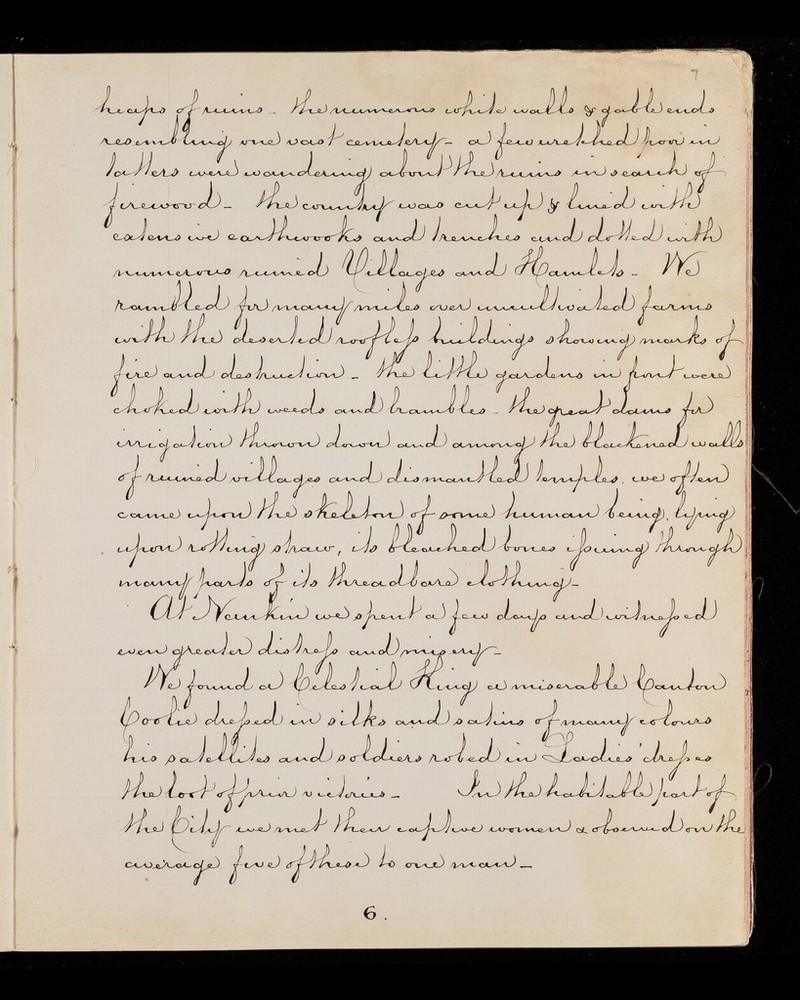 7
heaps of ruins - the numerous white walls & gable ends
resembling one vast cemetery - a few wretched poor in
tatters were wandering about the ruins in search of
firewood - the country was cut up & lined with
extensive earthworks and trenches and dotted with
numerous ruined Villages and Hamlets - We
rambled for many miles over uncultivated farms
with the deserted roofless buildings showing marks of
fire and destruction - the little gardens in front were
choked with weeds and brambles - the great dams for
irrigation thrown down and among the blackened walls
of ruined villages and dismantled temples, we often
came upon the skeleton of some human being, lying
upon rotting straw, its bleached bones issuing through
many parts of its threadbare clothing -
At Nankin we spent a few days and witnessed
even greater distress and misery -
We found a Celestial King a miserable Canton
Coolie dressed in silks and satins of many colours
his satellites and soldiers robed in Ladies' dresses
the loot of prior victories - In the habitable part of
the City we met their captive women & observed on the
average five of these to one man -
6.